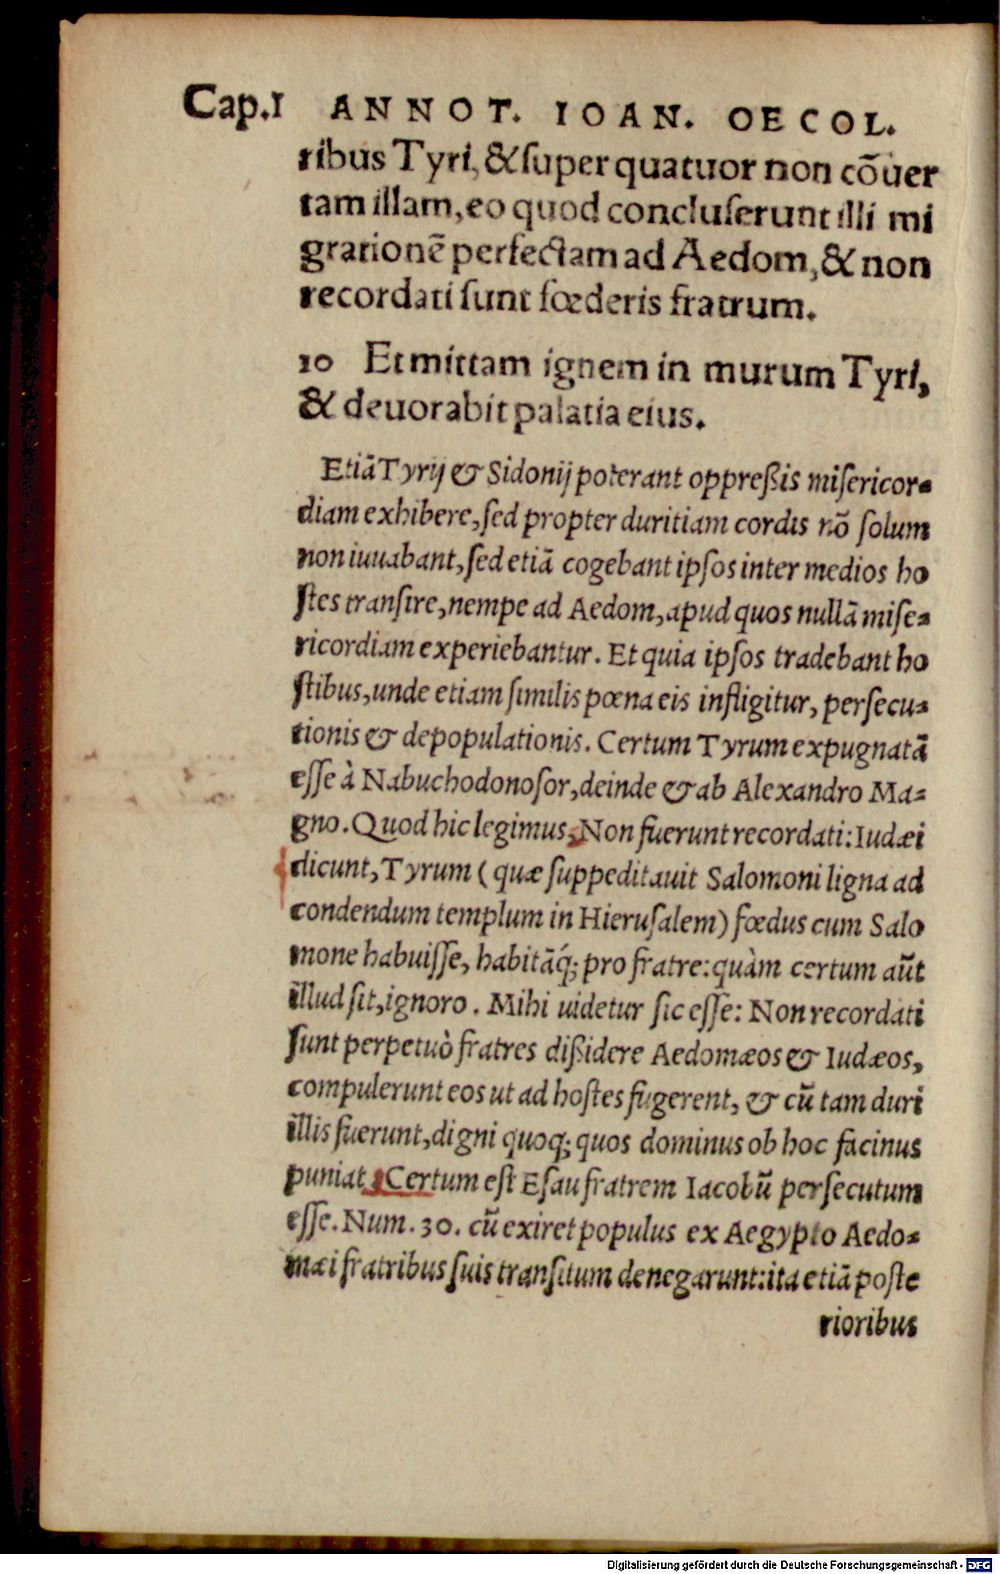 Cap.1 ANNOT. IOAN. OECOL.
ribus Tyri, & super quatuor non cõuer
tam illam, eo quod concluserunt illi mi
grationẽ perfectam ad Aedom, & non
recordati sunt fœderis fratrum.
10 Et mittam ignem in murum Tyri,
& deuorabit palatia eius.
Etiã Tyrij & Sidonij poterant oppreßis misericor-
diam exhibere, sed propter duritiam cordis nõ solum
non iuuabant, sed etiã cogebant ipsos inter medios ho
stes transire, nempe ad Aedom, apud quos nullã mise-
ricordiam experiebantur. Et quia ipsos tradebant ho
stibus, unde etiam similis pœna eis infligitur, persecu-
tionis & depopulationis. Certum Tyrum expugnatã
esse à Nabuchodonosor, deinde & ab Alexandro Ma-
gno. Quod hic legimus, Non fuerunt recordati: Iudæi
dicunt, Tyrum (quæ suppeditauit Salomoni ligna ad
condendum templum in Hierusalem) fœdus cum Salo
mone habuisse, habitãq́; pro fratre: quàm certum aũt
illud sit, ignoro. Mihi uidetur sic esse: Non recordati
sunt perpetuò fratres dißidere Aedomæos & Iudæos,
compulerunt eos ut ad hostes fugerent, & cũ tam duri
illis fuerunt, digni quoq; quos dominus ob hoc facinus
puniat. Certum est Esau fratrem Iacobũ persecutum
esse. Num. 30. cũ exiret populus ex Aegypto Aedo-
mæi fratribus suis transitum denegarunt: ita etiã poste
rioribus
Digitalisierung gefördert durch die Deutsche Forschungsgemeinschaft - DFG